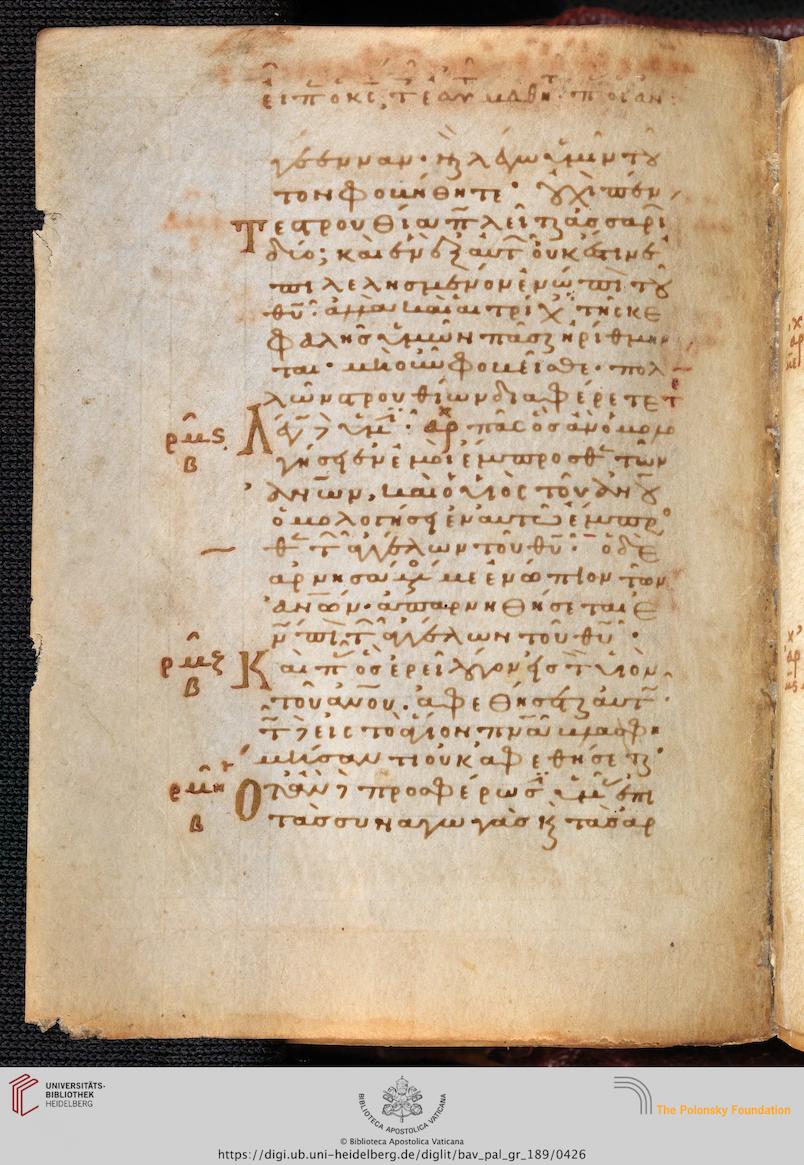 εἶπ ὁ κς, τ ἑαυ μαθη
γέενναν· ναὶ λέγω ὑμῖν τοῦ
τον φοβήθητε· οὐχὶ πέν
τε στρουθία πωλεῖται ἀσσαρί
δύο; καὶ ἓν ἐξ αυτ οὐκ ἔστιν ἐ
πιλελησμένον ἐνώπι τοῦ
θυ· ἀλλὰ καὶ αἱ τρίχ τῆς κε
φαλῆς ὑμῶν πᾶσαι ἠρίθμην
ται· μὴ οὖν φοβεῖσθε· πολ
λῶν στρουθίων διαφέρετε
ρμς Λέγ δὲ ὑμ· πᾶς ὃς ἂν ὁμολο
β γήσει ἐν ἐμοὶ ἔμπροσθ τῶν
ἀνων, καὶ ὁ υἱὸς τοῦ ἀνου
ὁμολογήσει ἐν αυτῶ ἔμπρο
θ τ ἀγγέλων τοῦ θυ· ὁ δὲ
ἀρνησάμ με ἐνώπιον τῶν
ἀνων· ἀπαρνηθήσεται ἐ
νώπι τ ἀγγέλων τοῦ θυ·
ρμζ Καὶ π ὃς ἐρεῖ λόγον εἰς τ υἱὸν
β τοῦ ἀνου· ἀφεθήσεται αυτ
τ δὲ εἰς τὸ ἅγιον πνα βλασφη
μήσαντι οὐκ ἀφεθήσεται·
ρμη Ὅταν δὲ προσφέρωσ ὑμ ἐπὶ
β τὰς συναγωγὰς καὶ τὰς ἀρ
UNIVERSITÄTS-
BIBLIOTHEK
HEIDELBERG
BIBLIOTECA APOSTOLICA VATICANA
The Polonsky Foundation
© Biblioteca Apostolica Vaticana
https://digi.ub.uni-heidelberg.de/diglit/bav_pal_gr_189/0426